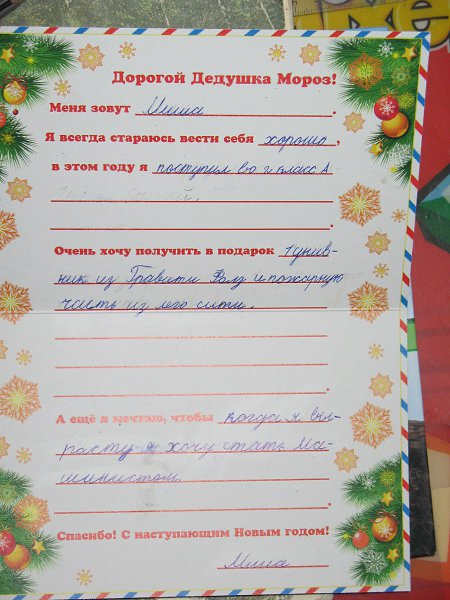 Дорогой Дедушка Мороз!
Меня зовут Миша.
Я всегда стараюсь вести себя хорошо,
в этом году я поступил во 2 класс А
Очень хочу получить в подарок 1 днив-
ник из Гравати Фолз и пожарную
часть из лего сити.
А ещё я мечтаю, чтобы когда я вы-
расту я хочу стать Ма-
шинистом.
Спасибо! С наступающим Новым годом!
Миша